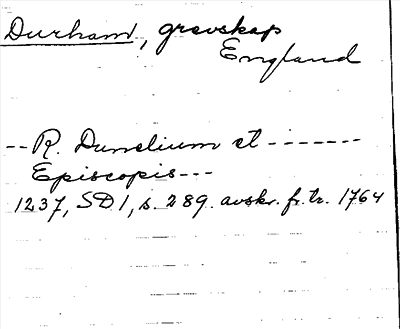 Durham, grevskap
England
--R. Dunelium et -------
Episcopis---
1237, SD1, s. 289. avskr. fr. tr. 1764